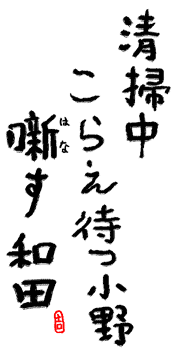 清掃中
こらえ待つ小野
噺す和田
はな
吉